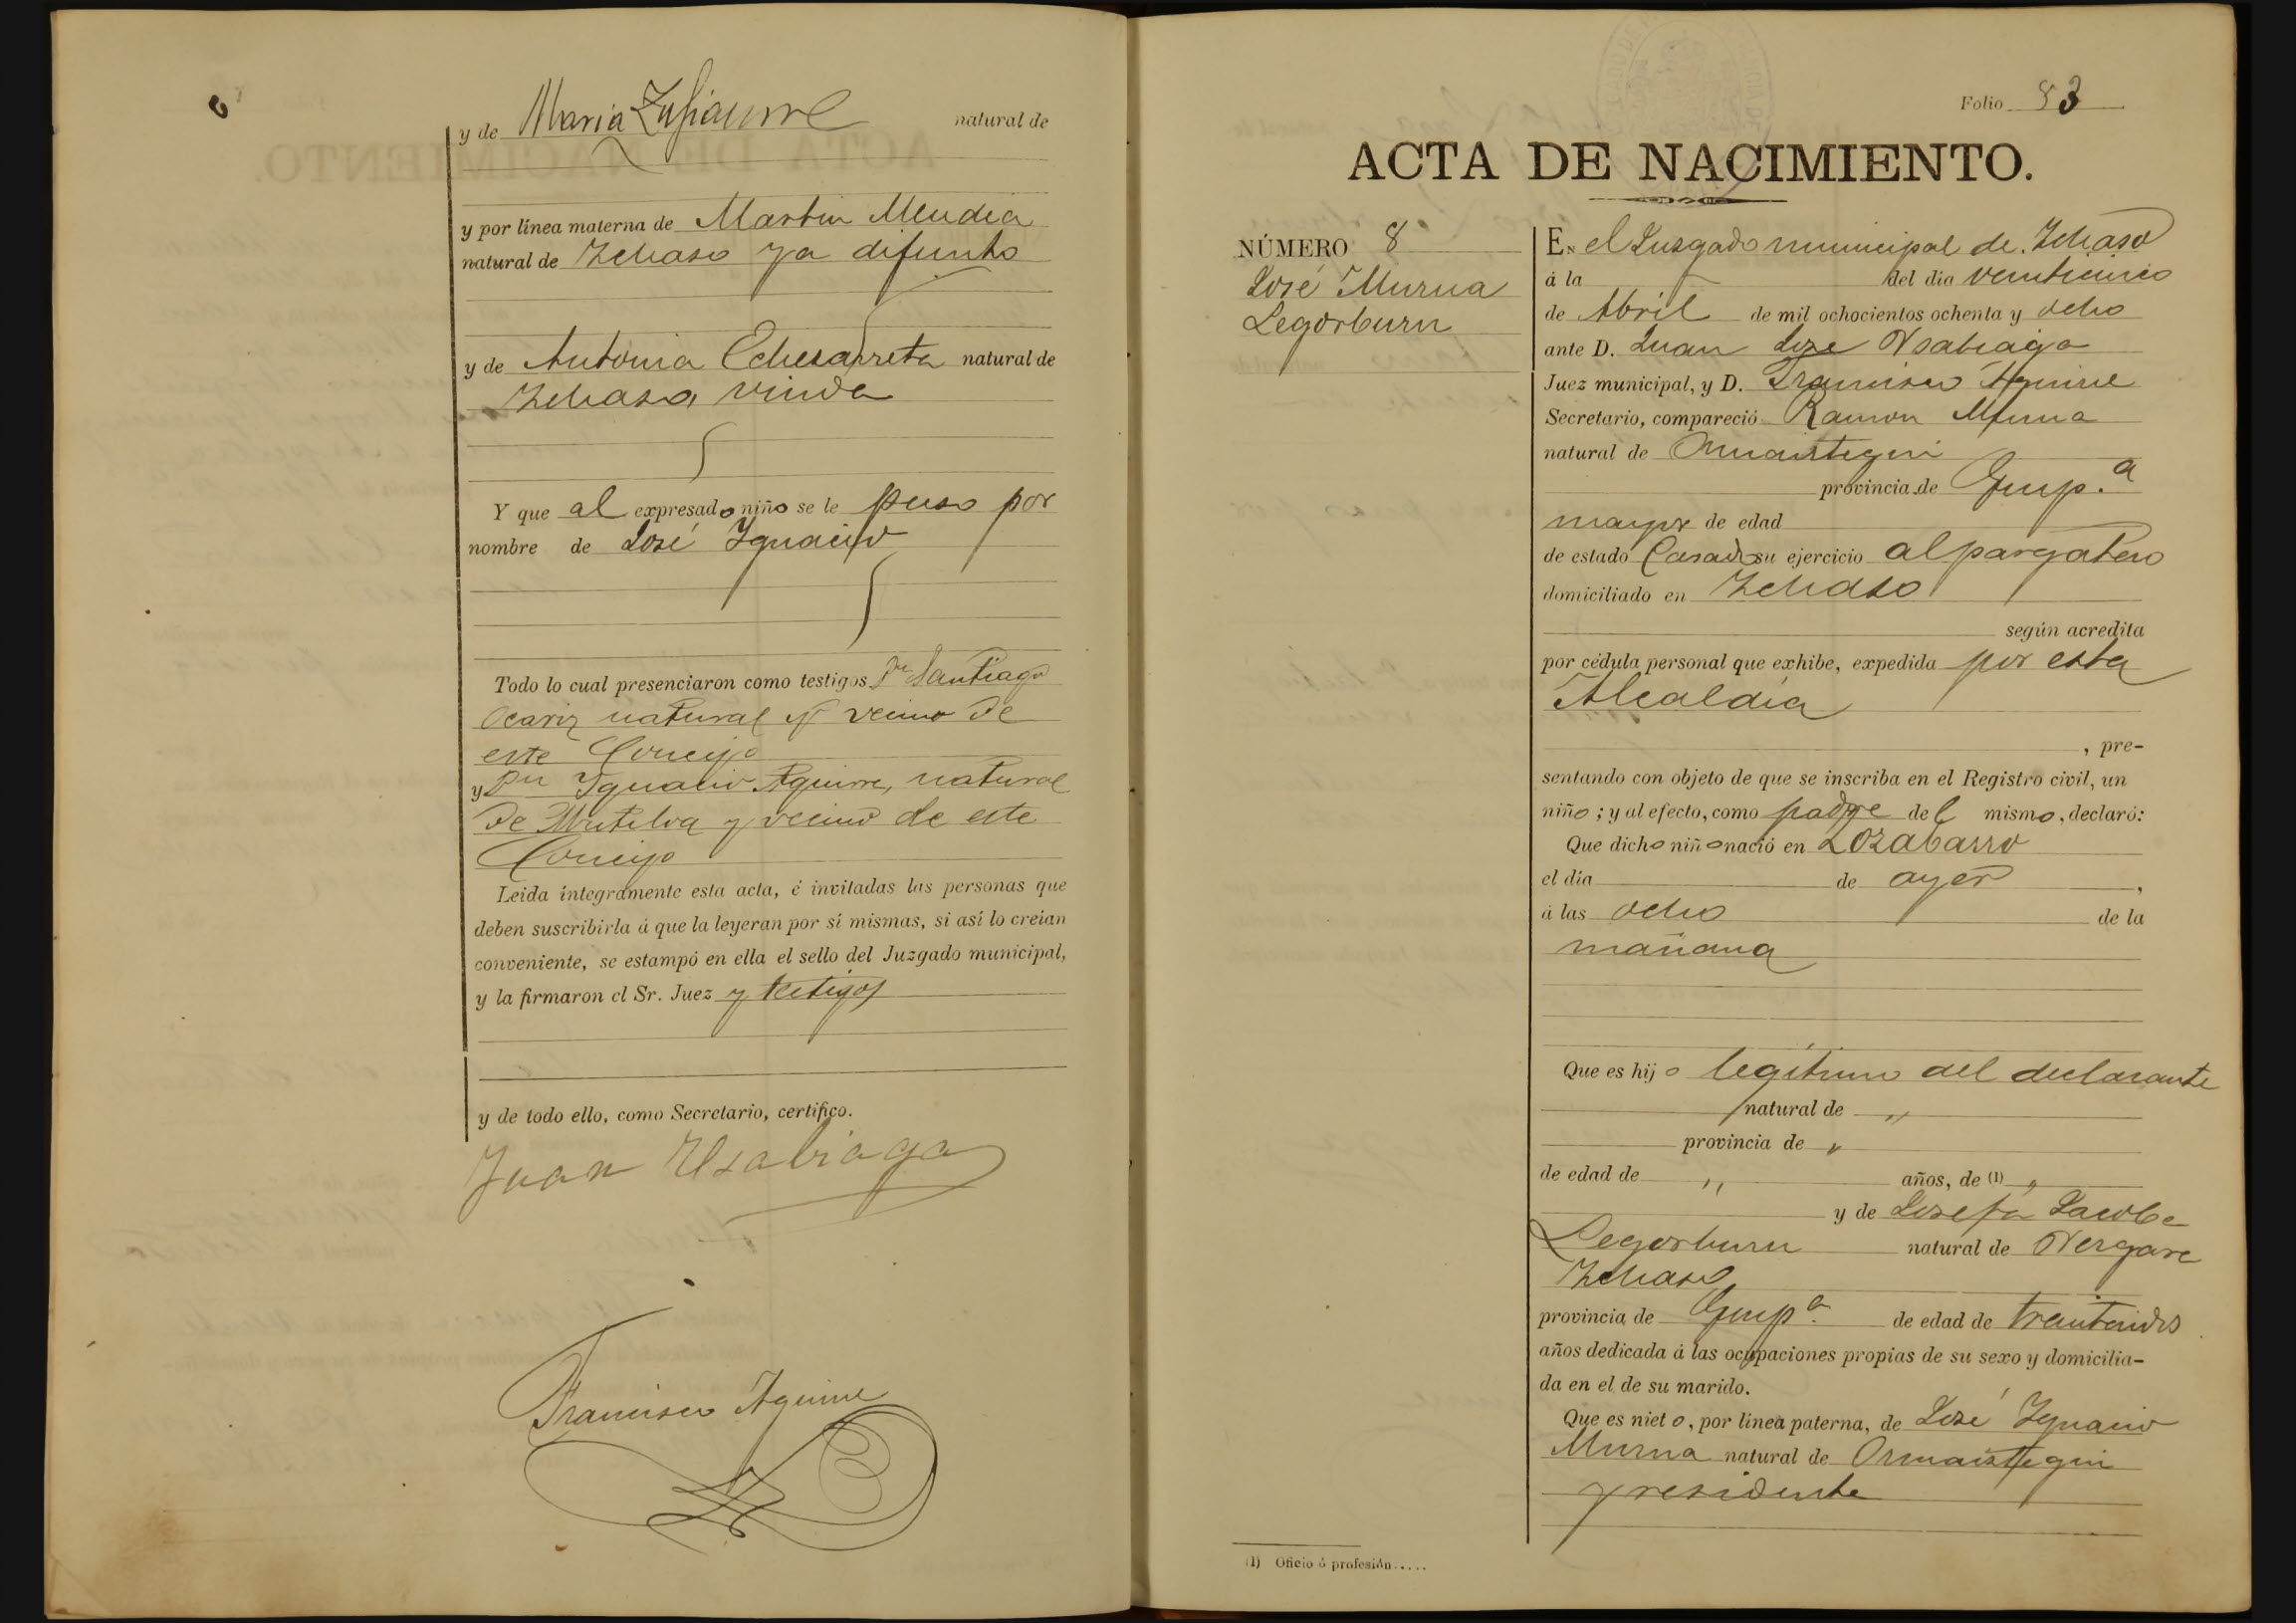 y de Maria Zufiaurre natural de
y por línea materna de Martin Mendia
natural de Ichaso ya difunto
y de Antonia Echezarreta natural de
Ichaso, viuda
Y que al expresado niño se le puso por
nombre de José Ignacio
Todo lo cual presenciaron como testigos Dn Santiago
Ocariz natural y vecino de
este Concejo
y Dn Ignacio Aguirre, natural
de Mutiloa y vecino de este
Concejo
Leida íntegramente esta acta, é invitadas las personas que
deben suscribirla á que la leyeran por sí mismas, si así lo creían
conveniente, se estampó en ella el sello del Juzgado municipal,
y la firmaron el Sr. Juez y testigos
y de todo ello, como Secretario, certifico.
Juan Usabiaga
Francisco Aguirre
Folio 83
ACTA DE NACIMIENTO.
NÚMERO 8
José Murua
Legorburu
En el Juzgado municipal de Ichaso
á la del día veinticinco
de Abril de mil ochocientos ochenta y ocho
ante D. Juan José Usabiaga
Juez municipal, y D. Francisco Aguirre
Secretario, compareció Ramon Murua
natural de Ormaiztegui
provincia de Guip.a
mayor de edad
de estado Casado su ejercicio alpargatero
domiciliado en Ichaso
según acredita
por cédula personal que exhibe, expedida por esta
Alcaldía
, pre-
sentando con objeto de que se inscriba en el Registro civil, un
niño; y al efecto, como padre del mismo, declaró:
Que dicho niño nació en Lozabarro
el día de ayer,
á las ocho de la
mañana
Que es hijo legítimo del declarante
natural de "
provincia de "
de edad de " años, de (1) "
y de Josefa Jacoba
Legorburu natural de Vergara
Ichaso
provincia de Guip.a de edad de treintaidos
años dedicada á las ocupaciones propias de su sexo y domicilia-
da en el de su marido.
Que es nieto, por línea paterna, de José Ignacio
Murua natural de Ormaiztegui
y residente
(1) Oficio ó profesión.....